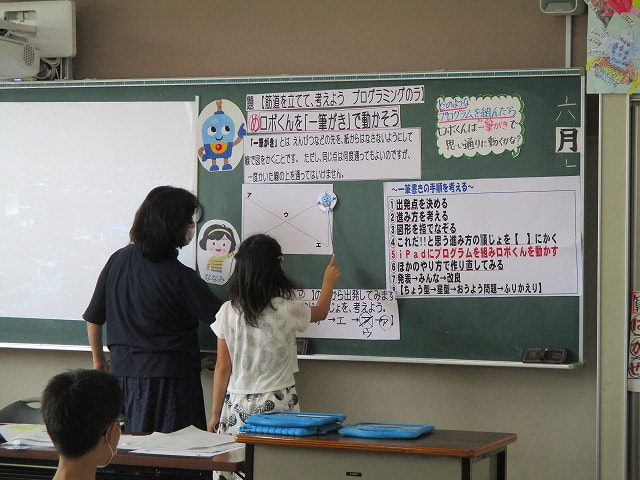 題 【筋道を立てて、考えよう プログラミングのう】
め ロボくんを「一筆がき」で動かそう
「一筆がき」とは えんぴつなどの先を、紙からはなさないようにして
線で図をかくことです。 ただし、同じ点は何度通ってもよいのですが、
一度かいた線の上を通ってはいけません。
どのような
プログラムを組んだら
ロボくんは一筆がきで
思い通りに動くかな?
六
月
ア
ウ
エ
ななみ
～一筆書きの手順を考える～
1 出発点を決める
2 進み方を考える
3 図形を指でなぞる
4 これだ!!と思う進み方の順じょを【 】にかく
5 iPadにプログラムを組みロボくんを動かす
6 ほかのやり方で作り直してみる
7 発表→みんな→改良
8 【ちょう型→星型→おうよう問題→ふりかえり】
から出発してみます
じょを、考えよう。
→エ→
ウ